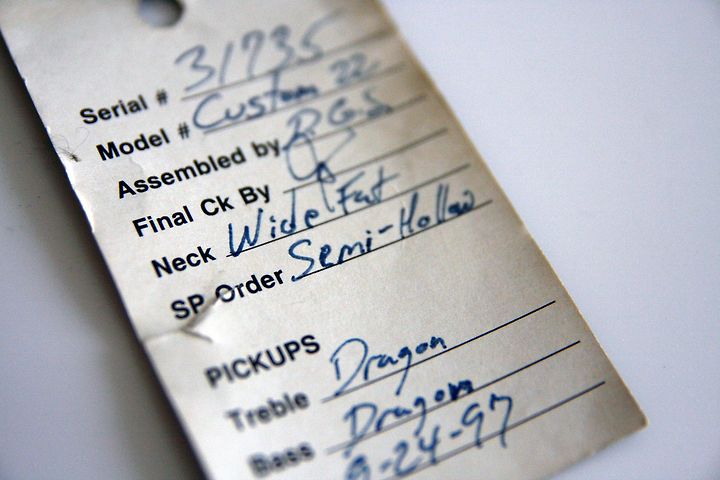 Serial # 31735
Model # Custom 22
Assembled by R.G.S
Final Ck By
Neck Wide Fat
SP Order Semi-Hollow
PICKUPS
Treble Dragon
Bass Dragon
9-24-97